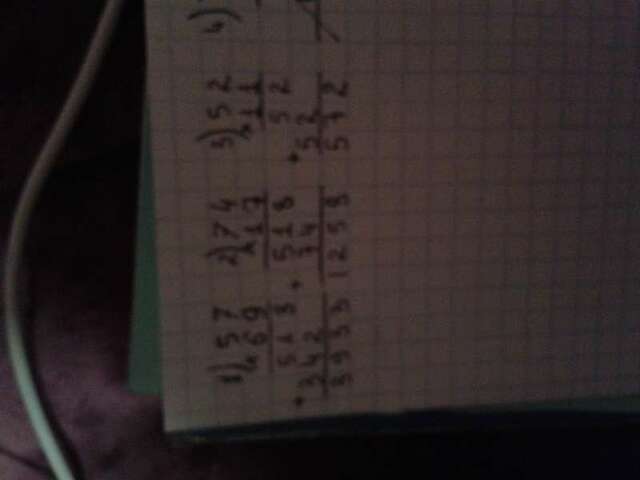 1) 57
× 69
513
+ 342
3933
2) 74
× 17
518
+ 74
1258
3) 52
× 11
52
+ 52
572
4)